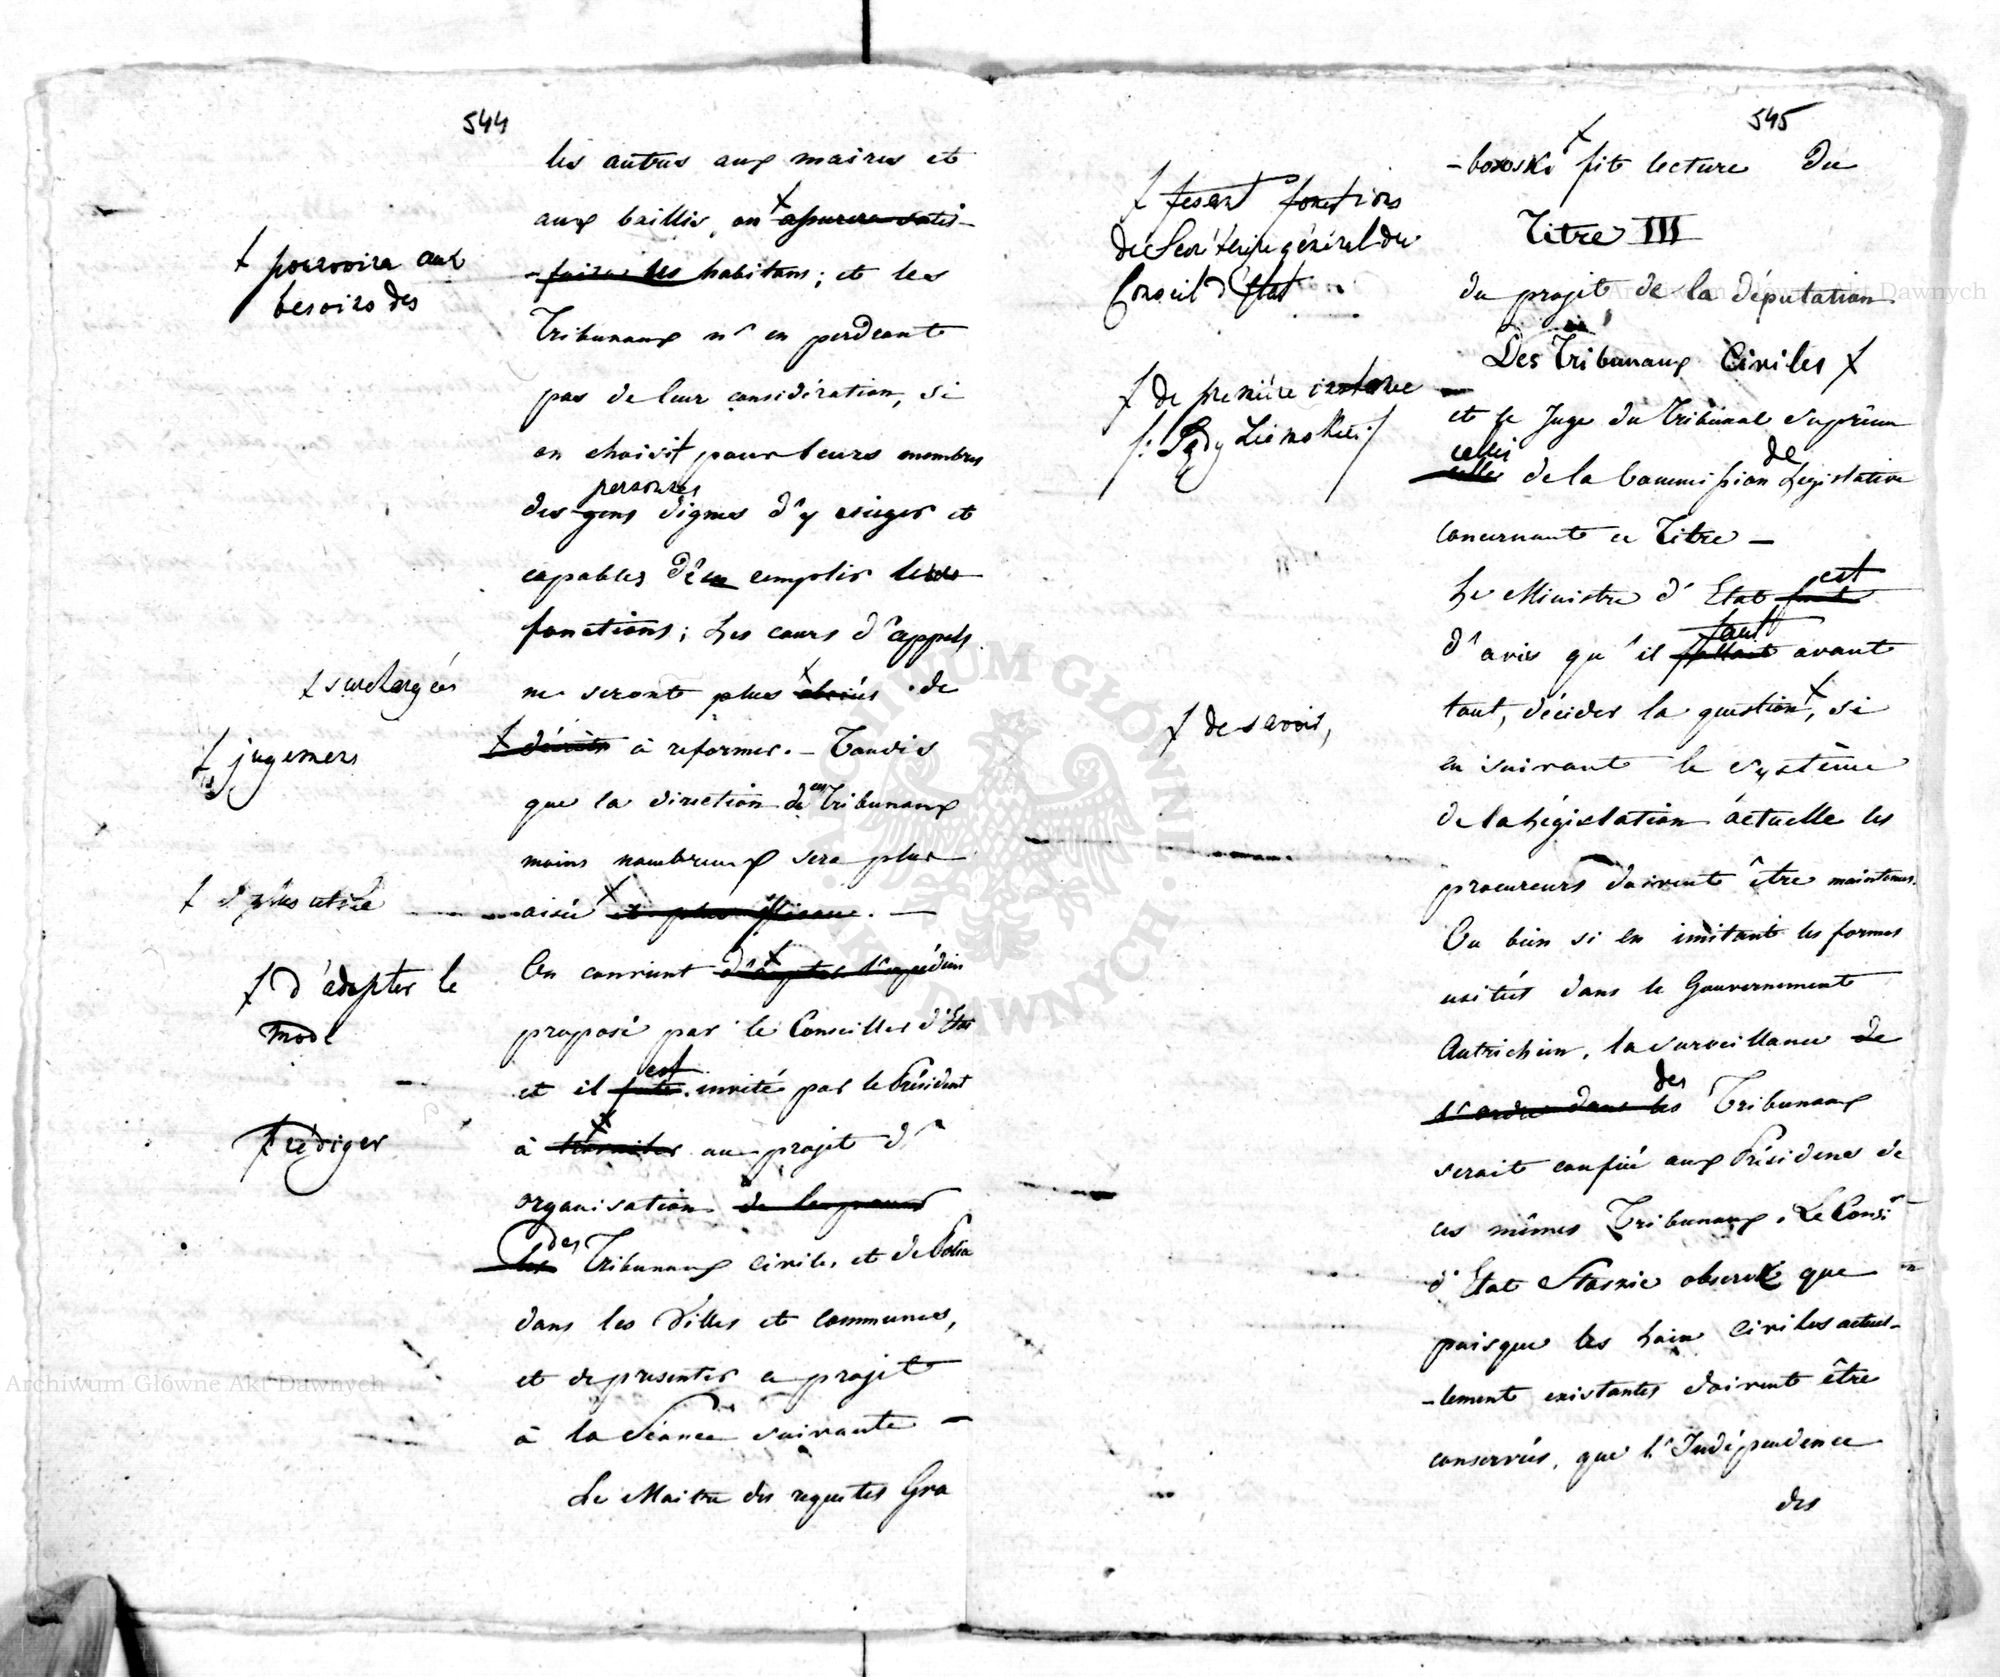 544
les autres aux maires et
aux baillis, on assurera satis-
pourvoira aux
besoins des
-faire les habitans; et les
Tribunaux n'en perdront
pas de leur considération, si
on choisit pour leurs membres
personnes
des gens dignes d'y sieger et
capables d'en remplir leurs
fonctions; Les cours d'appels
surchargées
ne seront plus de
jugemens
décrets à reformer. – Tandis
que la direction de ces Tribunaux
moins nombreux sera plus
& plus utile
aisée et plus efficace. —
On convient d'adopter l'expédient
d'adopter le
mode
proposé par le Conseiller d'Etat
est
et il fut invité par le Président
à travailler au projet d'
rédiger
organisation de les
des
les Tribunaux civils, et de Police
dans les Villes et communes,
et de presenter ce projet
à la Séance suivante –
Le Maitre des requetes Gra
545
-bowski fit lecture du
fesant fonctions
de Secrétaire général du
Conseil d'Etat
Titre III
du projet de la députation
Des Tribunaux Civiles
de première instance
/: Sądy Ziemskie :/
et le Juge du Tribunal Suprême
celui
celle de la Commission de Législative
concernant ce Titre –
est
Le Ministre d'Etat fut
faut
d'avis qu'il fallait avant
tout, décider la question, si
de savoir,
en suivant le système
de la Législation actuelle les
procureurs doivent être maintenus.
Ou bien si en imitant les formes
usitées dans le Gouvernement
Autrichien, la surveillance de
des
l'ordre dans les Tribunaux
serait confiée aux Présidens de
ces mêmes Tribunaux. Le Cons:
d'Etat Staszic observe que
puisque les Loix Civiles actuel-
-lement existantes doivent être
conservées, que l'Indépendence
des